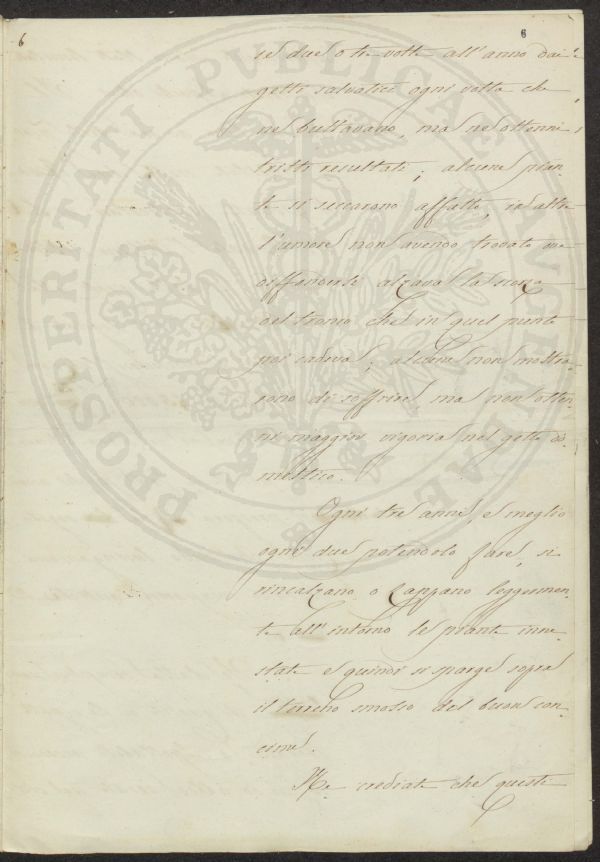 6 6
se due o tre volte all'anno dai
getti salvatici ogni volta che
ne buttavano, ma ne ottenni
tristi resultati; alcune pian-
te si seccarono affatto, in altre
l'umore non avendo trovato ove
diffondersi alzava la scorza
del tronco che in quel punto
poi cadeva; alcune non mostra-
rono di soffrire ma non otten-
ni maggior vigoria nel getto do-
mestico.
Ogni tre anni, e meglio
ogni due potendolo fare, si
rincalzano o zappano leggermen-
te all'intorno le piante inne-
state e quindi si sparge sopra
il terreno smosso del buon con-
cime.
Ne crediate che queste
PROSPERITATI PUBLICAE AUGENDAE